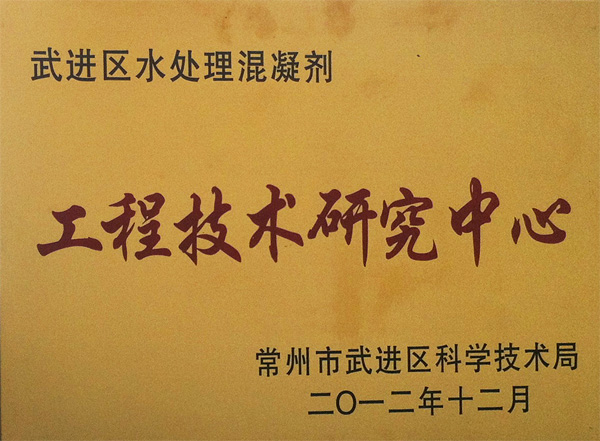 武进区水处理混凝剂
工程技术研究中心
常州市武进区科学技术局
二〇一二年十二月